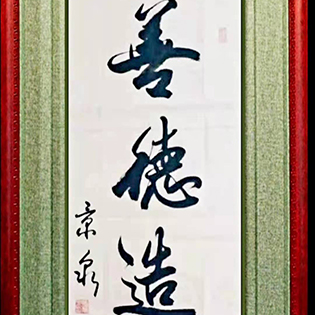 善德造
景泉